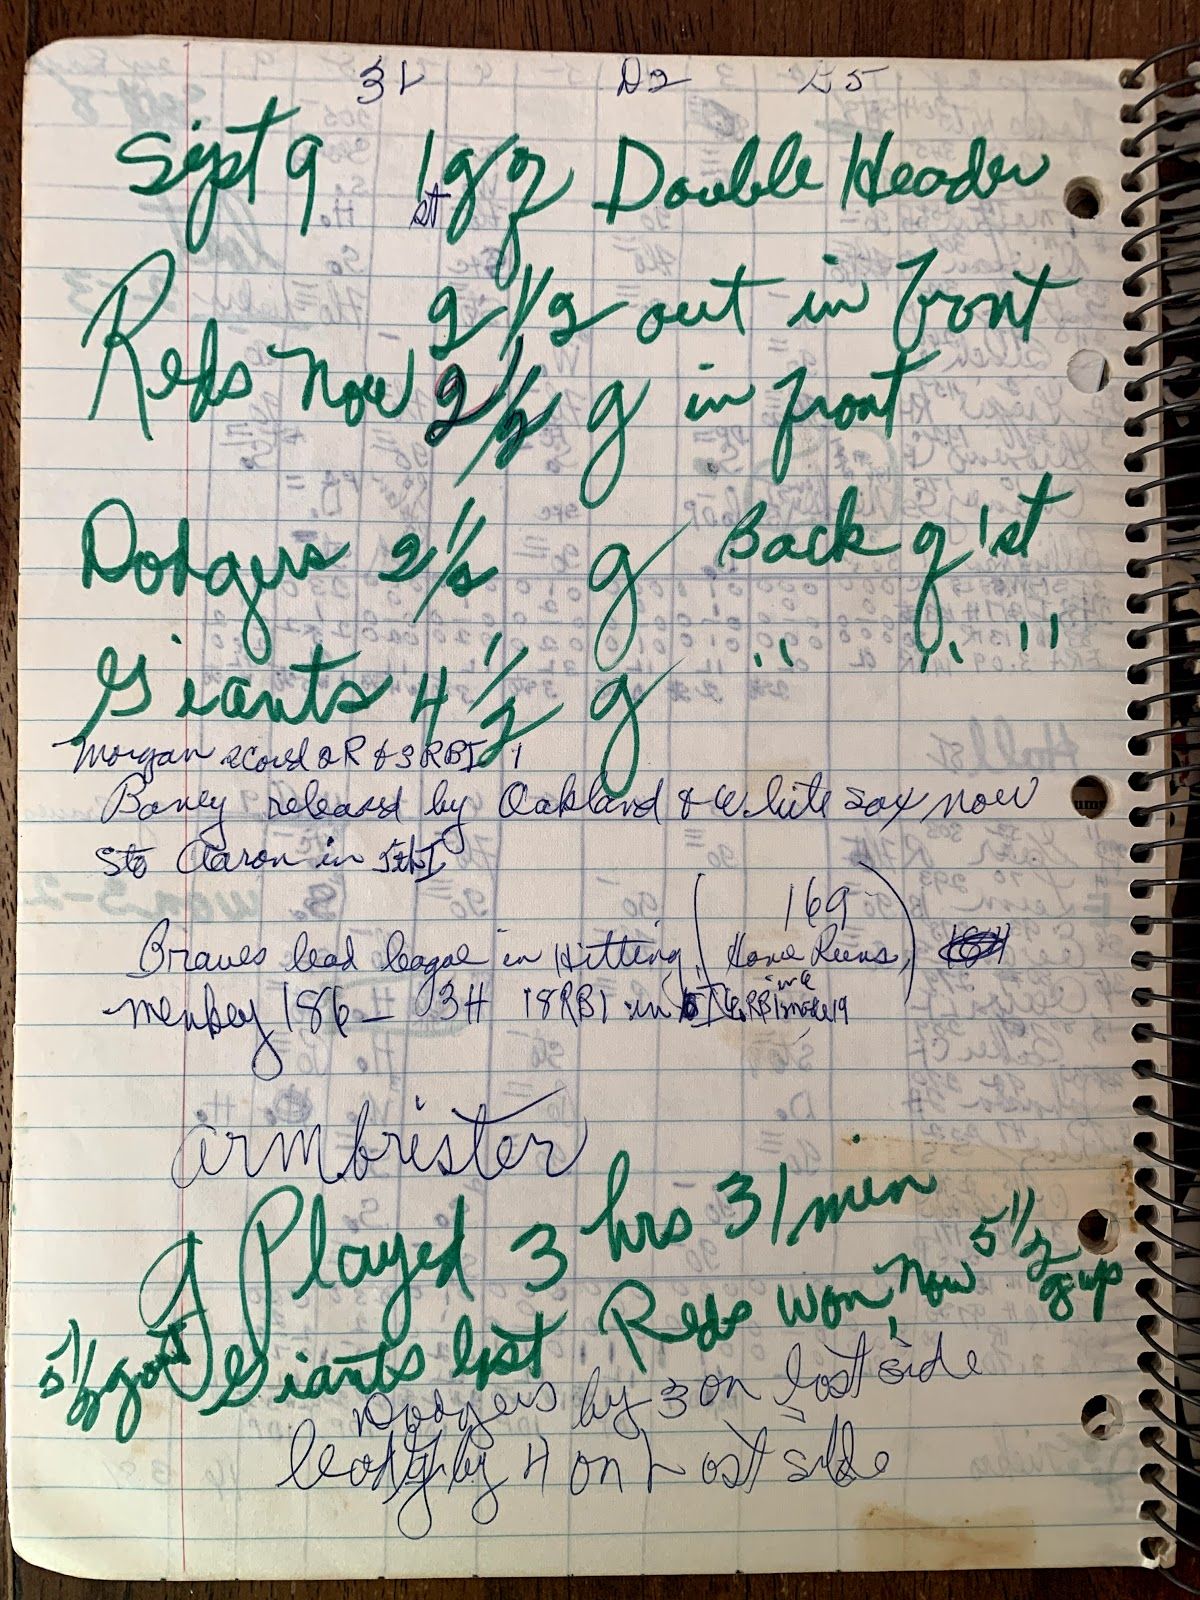 31 D2 L5
Sept 9 1st g of Double Header
2 1/2 out in front
Reds Now 2 1/2 g in front
Dodgers 2 1/2 g Back of 1st
Giants 4 1/2 g " " "
Morgan scored 2 R & 3 RBI
Baney released by Oakland & White Sox now
Sto Aaron in 5th I
Braves lead league in Hitting (169 Home Runs)
Menkey 186 – 3H 18 RBI in
armbrister
g Played 3 hrs 31 min
5 1/2 g out Giants lost Reds won, Now 5 1/2 g up
Dodgers by 3 on lost side
lead by 4 on Lost side